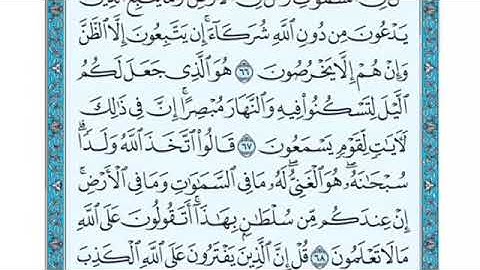 يَدْعُونَ مِن دُونِ ٱللَّهِ شُرَكَآءَ ۚ إِن يَتَّبِعُونَ إِلَّا ٱلظَّنَّ
وَإِنْ هُمْ إِلَّا يَخْرُصُونَ ٦٦ هُوَ ٱلَّذِى جَعَلَ لَكُمُ
ٱلَّيْلَ لِتَسْكُنُوا۟ فِيهِ وَٱلنَّهَارَ مُبْصِرًا ۚ إِنَّ فِى ذَٰلِكَ
لَـَٔايَـٰتٍ لِّقَوْمٍ يَسْمَعُونَ ٦٧ قَالُوا۟ ٱتَّخَذَ ٱللَّهُ وَلَدًا ۗ
سُبْحَـٰنَهُۥ ۖ هُوَ ٱلْغَنِىُّ ۖ لَهُۥ مَا فِى ٱلسَّمَـٰوَٰتِ وَمَا فِى ٱلْأَرْضِ ۚ
إِنْ عِندَكُم مِّن سُلْطَـٰنٍۭ بِهَـٰذَآ ۚ أَتَقُولُونَ عَلَى ٱللَّهِ
مَا لَا تَعْلَمُونَ ٦٨ قُلْ إِنَّ ٱلَّذِينَ يَفْتَرُونَ عَلَى ٱللَّهِ ٱلْكَذِبَ